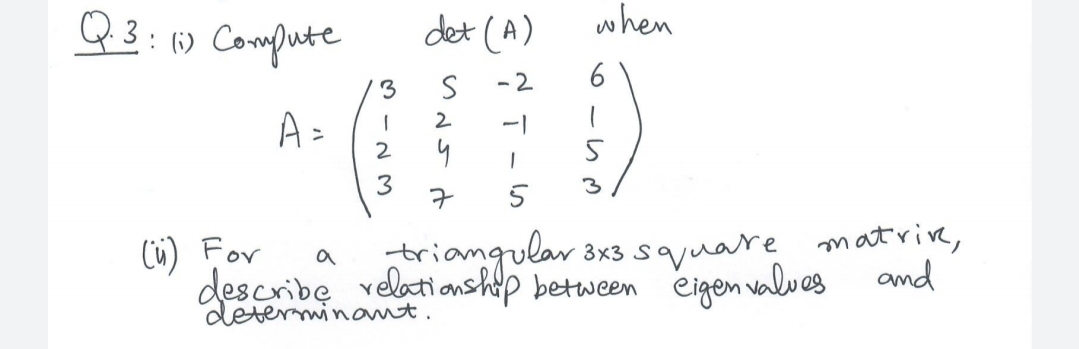 Q.3: (i) Compute det (A) when
3 5 -2 6
A = 1 2 -1 1
2 4 1 5
3 7 5 3
(ii) For a triangular 3x3 square matrix,
describe relationship between eigenvalues and
determinant.